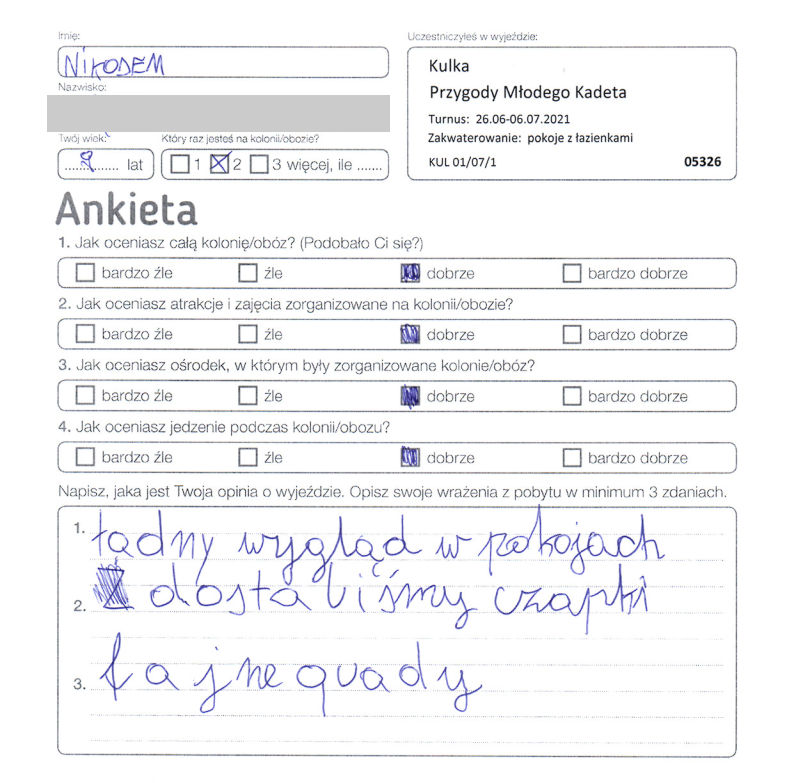 Imię:
NIKODEM
Nazwisko:
Twój wiek:
9 lat
Który raz jesteś na kolonii/obozie?
1 2 3 więcej, ile .......
Uczestniczyłeś w wyjeździe:
Kulka
Przygody Młodego Kadeta
Turnus: 26.06-06.07.2021
Zakwaterowanie: pokoje z łazienkami
KUL 01/07/1 05326
Ankieta
1. Jak oceniasz całą kolonię/obóz? (Podobało Ci się?)
bardzo źle źle dobrze bardzo dobrze
2. Jak oceniasz atrakcje i zajęcia zorganizowane na kolonii/obozie?
bardzo źle źle dobrze bardzo dobrze
3. Jak oceniasz ośrodek, w którym były zorganizowane kolonie/obóz?
bardzo źle źle dobrze bardzo dobrze
4. Jak oceniasz jedzenie podczas kolonii/obozu?
bardzo źle źle dobrze bardzo dobrze
Napisz, jaka jest Twoja opinia o wyjeździe. Opisz swoje wrażenia z pobytu w minimum 3 zdaniach.
1. ładny wygląd w pokojach
2. dostaliśmy czapki
3. fajne quady